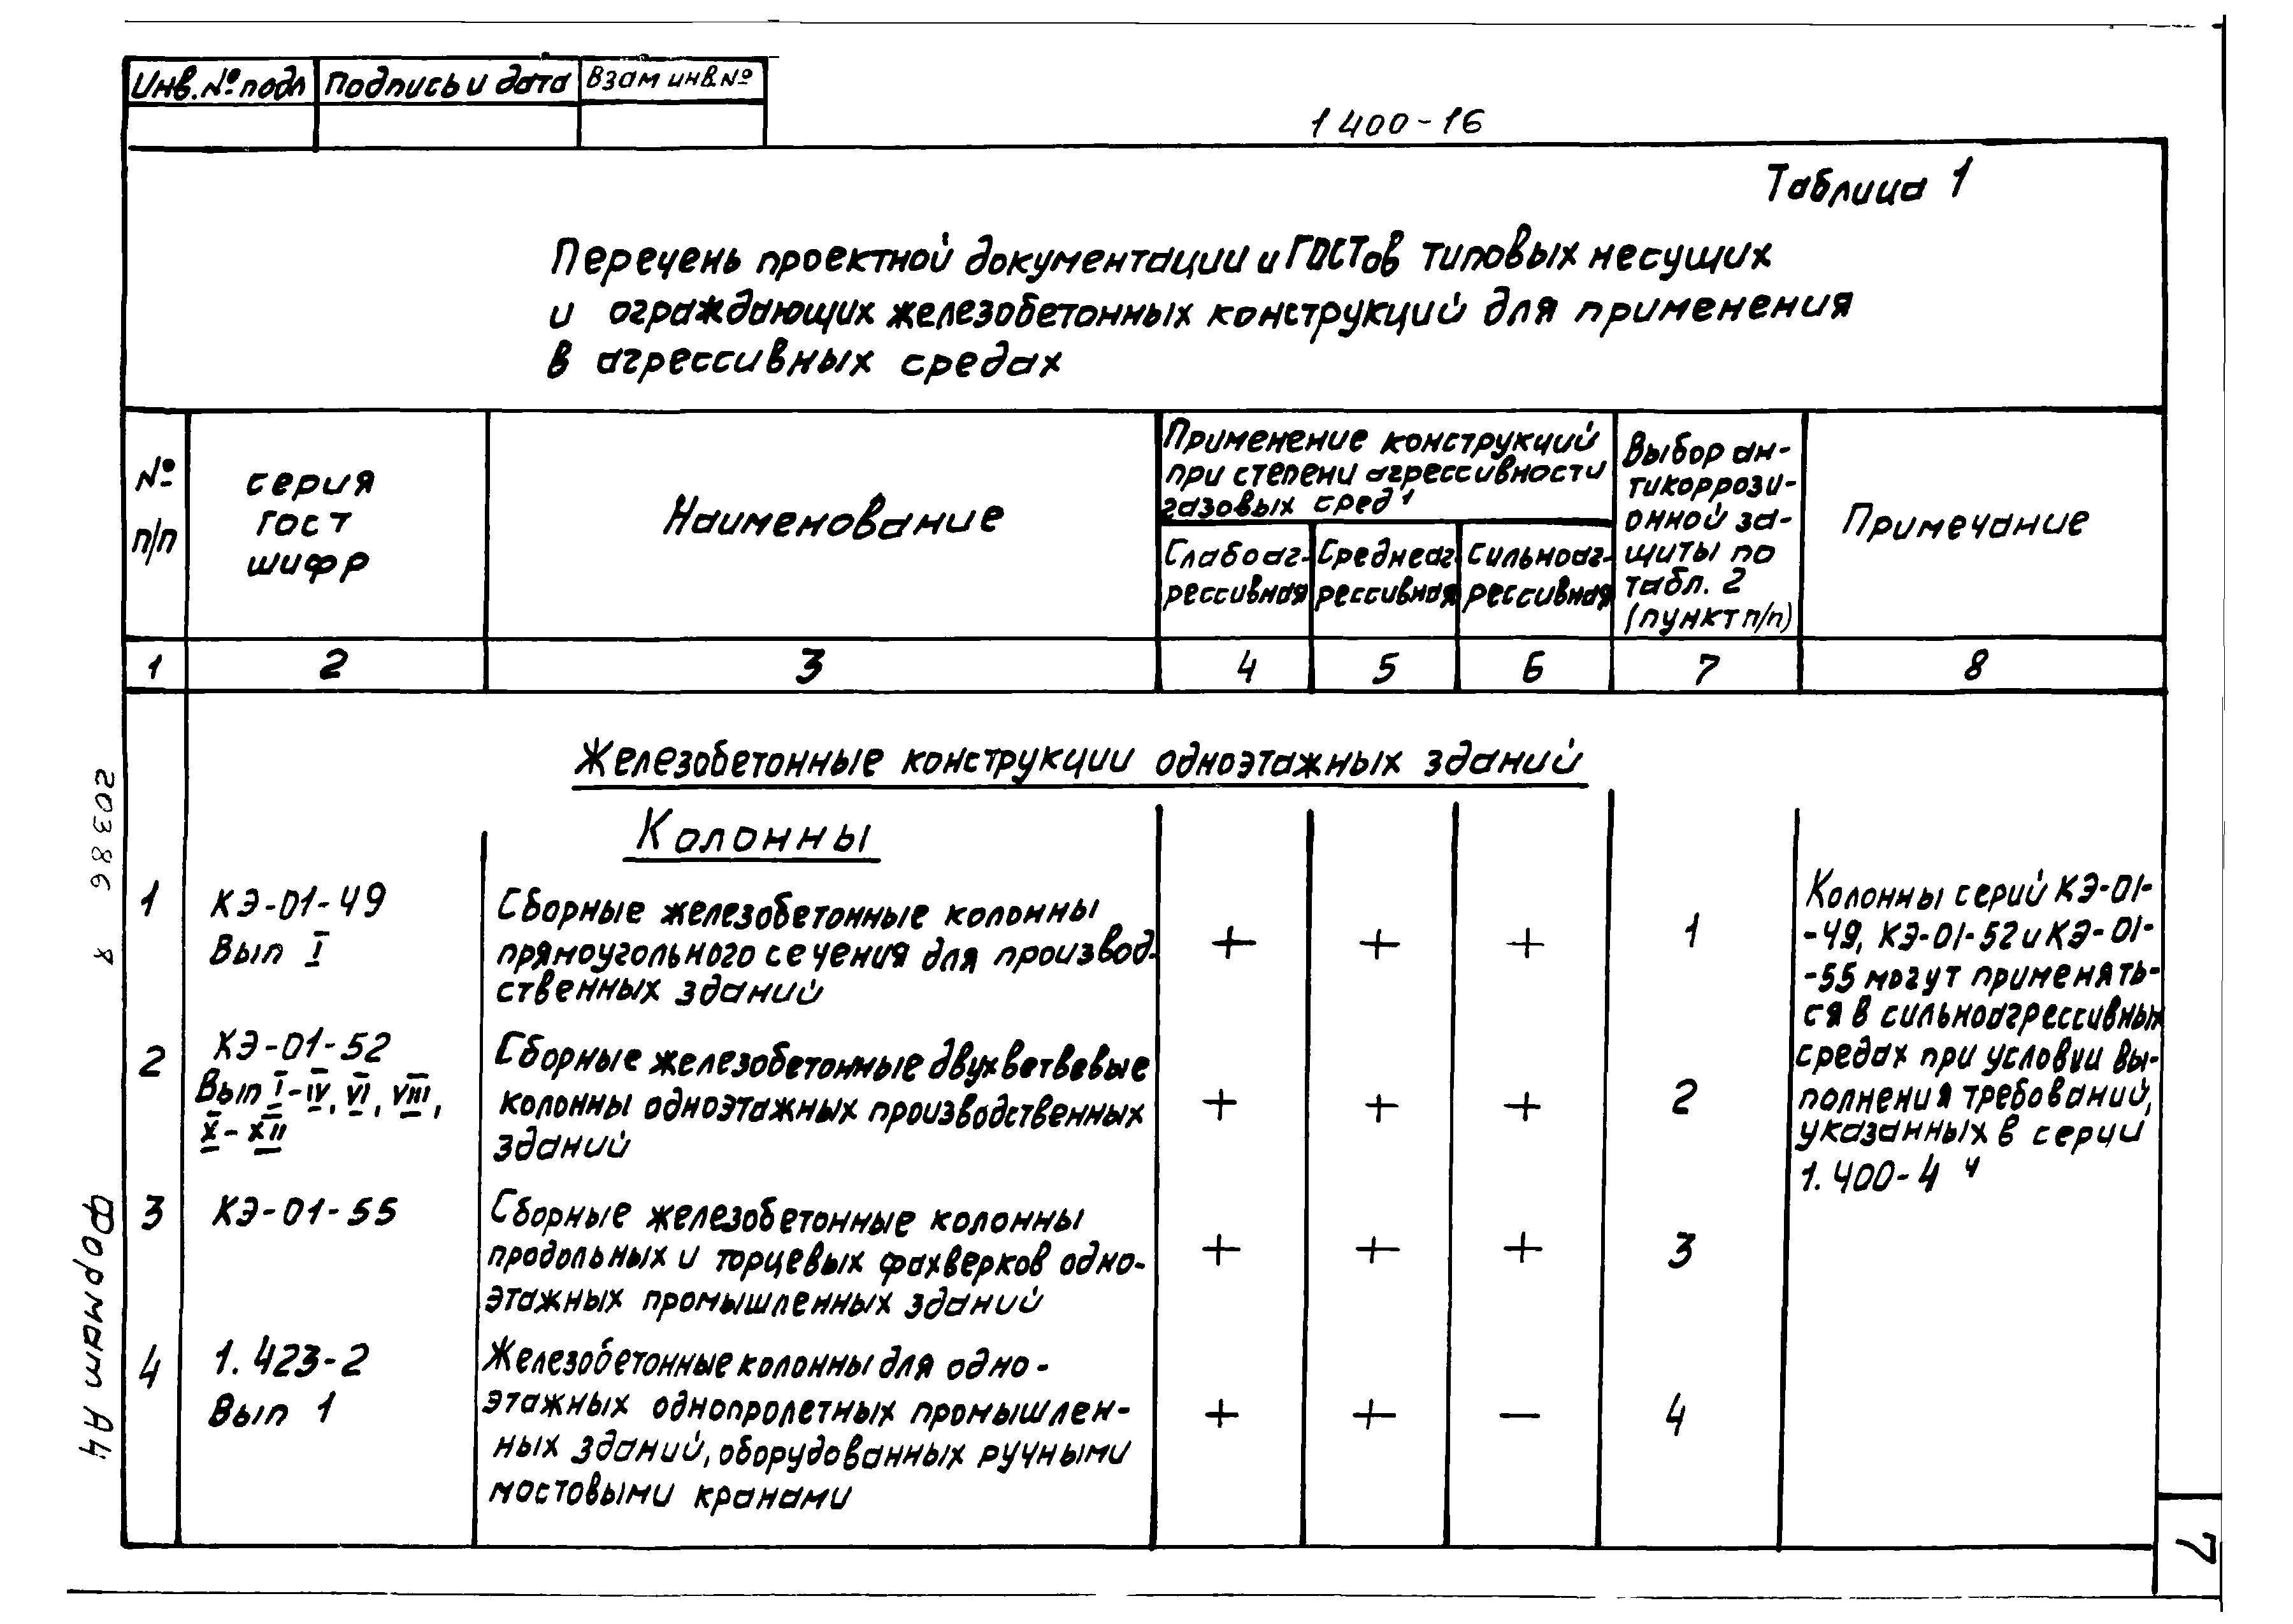 Инв.№подл Подпись и дата Взам инв.№
1 400-16
Таблица 1
Перечень проектной документации и ГОСТов типовых несущих
и ограждающих железобетонных конструкций для применения
в агрессивных средах
№
п/п
серия
ГОСТ
шифр
Наименование
Применение конструкций
при степени агрессивности
газовых сред¹
Слабоаг-
рессивная
Среднеаг-
рессивная
Сильноаг-
рессивная
Выбор ан-
тикоррози-
онной за-
щиты по
табл. 2
(пункт п/п)
Примечание
1 2 3 4 5 6 7 8
Железобетонные конструкции одноэтажных зданий
Колонны
1
КЭ-01-49
Вып I
Сборные железобетонные колонны
прямоугольного сечения для производ-
ственных зданий
+ + + 1
2
КЭ-01-52
Вып I-IV, VI, VIII,
X-XII
Сборные железобетонные двухветвевые
колонны одноэтажных производственных
зданий
+ + + 2
3
КЭ-01-55
Сборные железобетонные колонны
продольных и торцевых фахверков одно-
этажных промышленных зданий
+ + + 3
4
1.423-2
Вып 1
Железобетонные колонны для одно-
этажных однопролетных промышлен-
ных зданий, оборудованных ручными
мостовыми кранами
+ + – 4
Колонны серий КЭ-01-
-49, КЭ-01-52 и КЭ-01-
-55 могут применять-
ся в сильноагрессивных
средах при условии вы-
полнения требований,
указанных в серии
1.400-4 ч
20386 8
Формат А4
7